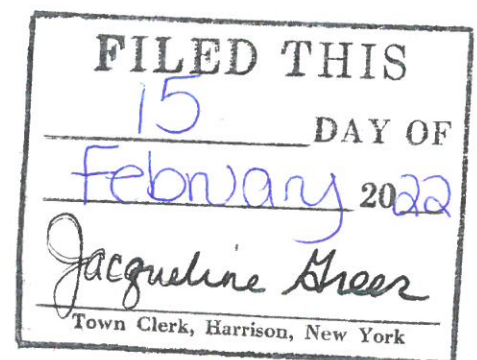 FILED THIS
15 DAY OF
February 2022
Jacqueline Greer
Town Clerk, Harrison, New York